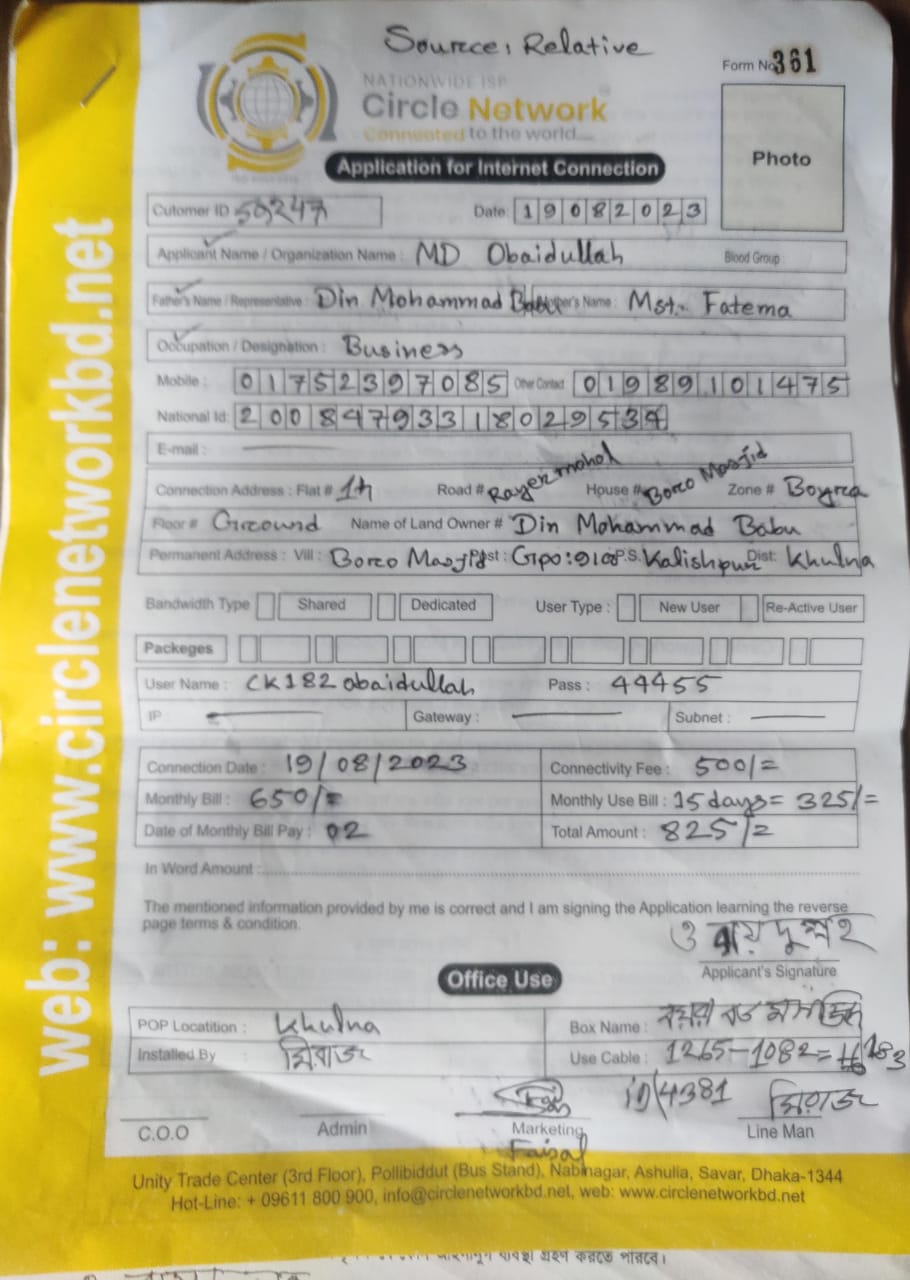 Source: Relative
Form No 361
NATIONWIDE ISP
Circle Network
Connected to the world
Photo
Application for Internet Connection
Cutomer ID 50247 Date: 19082023
Applicant Name / Organization Name : MD Obaidullah Blood Group :
Father's Name / Representative : Din Mohammad Babu Mother's Name : Mst. Fatema
Occupation / Designation : Business
Mobile : 01752397085 Other Contact 01989101475
National Id:
E-mail :
Connection Address : Flat # Road # Rayer mohol House # Boro Masjid Zone # Boyra
Floor # Ground Name of Land Owner # Din Mohammad Babu
Permanent Address : Vill : Boro Masjid Post : Gpo: P.S. Kalishpur Dist: Khulna
Bandwidth Type Shared Dedicated User Type : New User Re-Active User
Packeges
User Name : CK182 obaidullah Pass : 44455
IP : Gateway : Subnet :
Connection Date : 19/08/2023 Connectivity Fee : 500/=
Monthly Bill : 650/= Monthly Use Bill : 15 days = 325/=
Date of Monthly Bill Pay : 02 Total Amount : 825/=
In Word Amount :
The mentioned information provided by me is correct and I am signing the Application learning the reverse
page terms & condition.
ওবায়দুল্লাহ
Applicant's Signature
Office Use
POP Locatition : Khulna Box Name : বয়রা বড় মসজিদ
Installed By : মিরাজ Use Cable : 1265-1082=183
id/4381 মিরাজ
C.O.O Admin Marketing Line Man
Faisal
Unity Trade Center (3rd Floor), Pollibiddut (Bus Stand), Nabinagar, Ashulia, Savar, Dhaka-1344
Hot-Line: + 09611 800 900, info@circlenetworkbd.net, web: www.circlenetworkbd.net
web: www.circlenetworkbd.net
ব্যবস্থা গ্রহণ করতে পারবে।